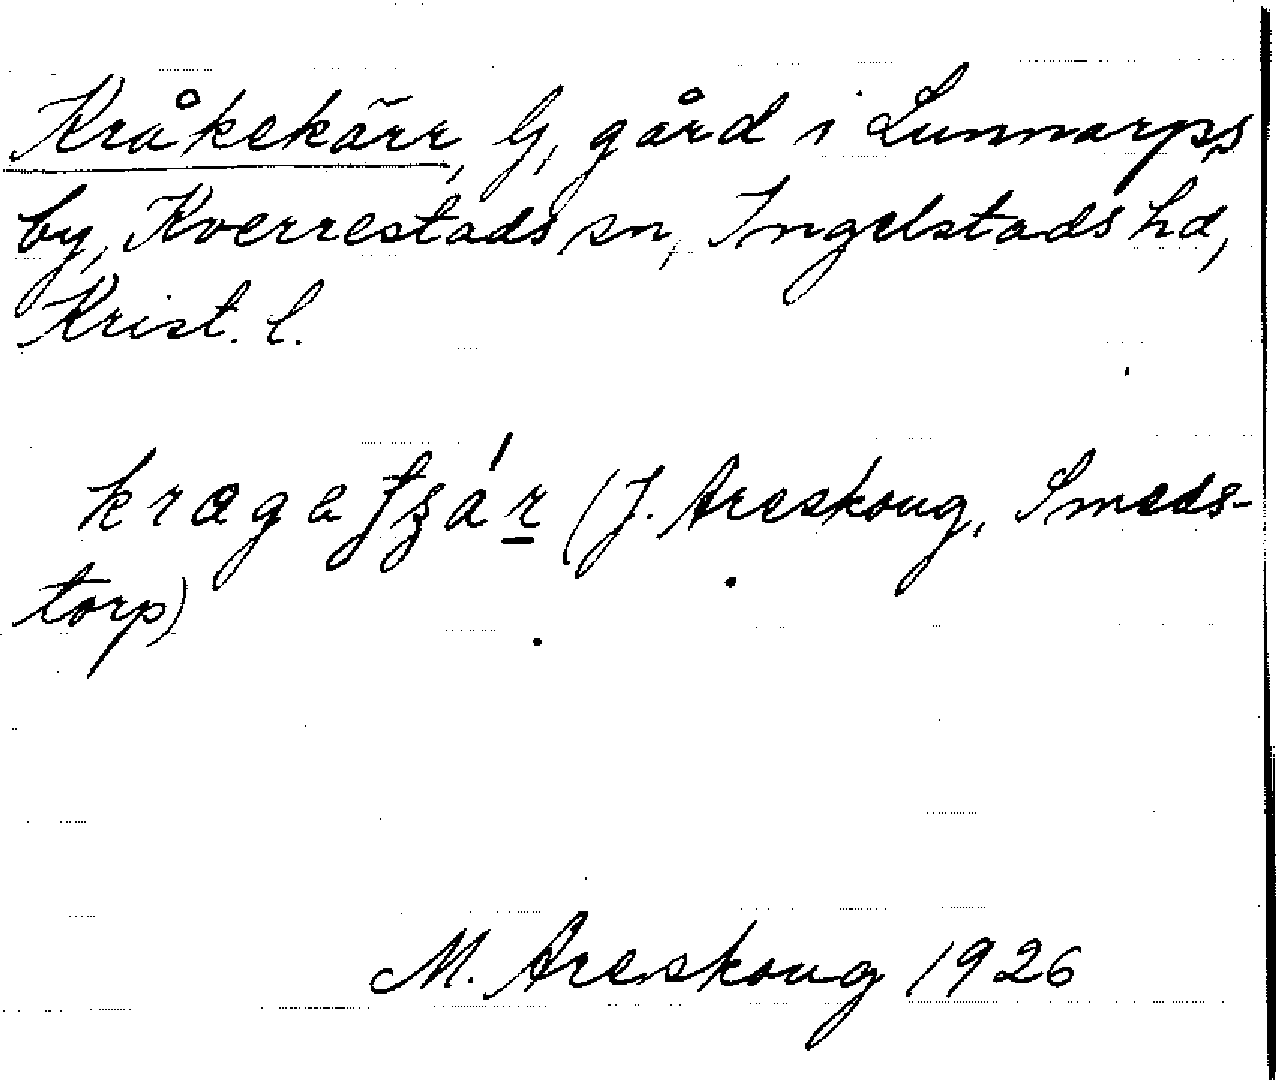 Kråkekärr, G, gård i Lunnarps
by, Kverrestads sn, Ingelstads hd,
Krist. l.
(J. Areskoug, Smeds-
torp)
M. Areskoug 1926